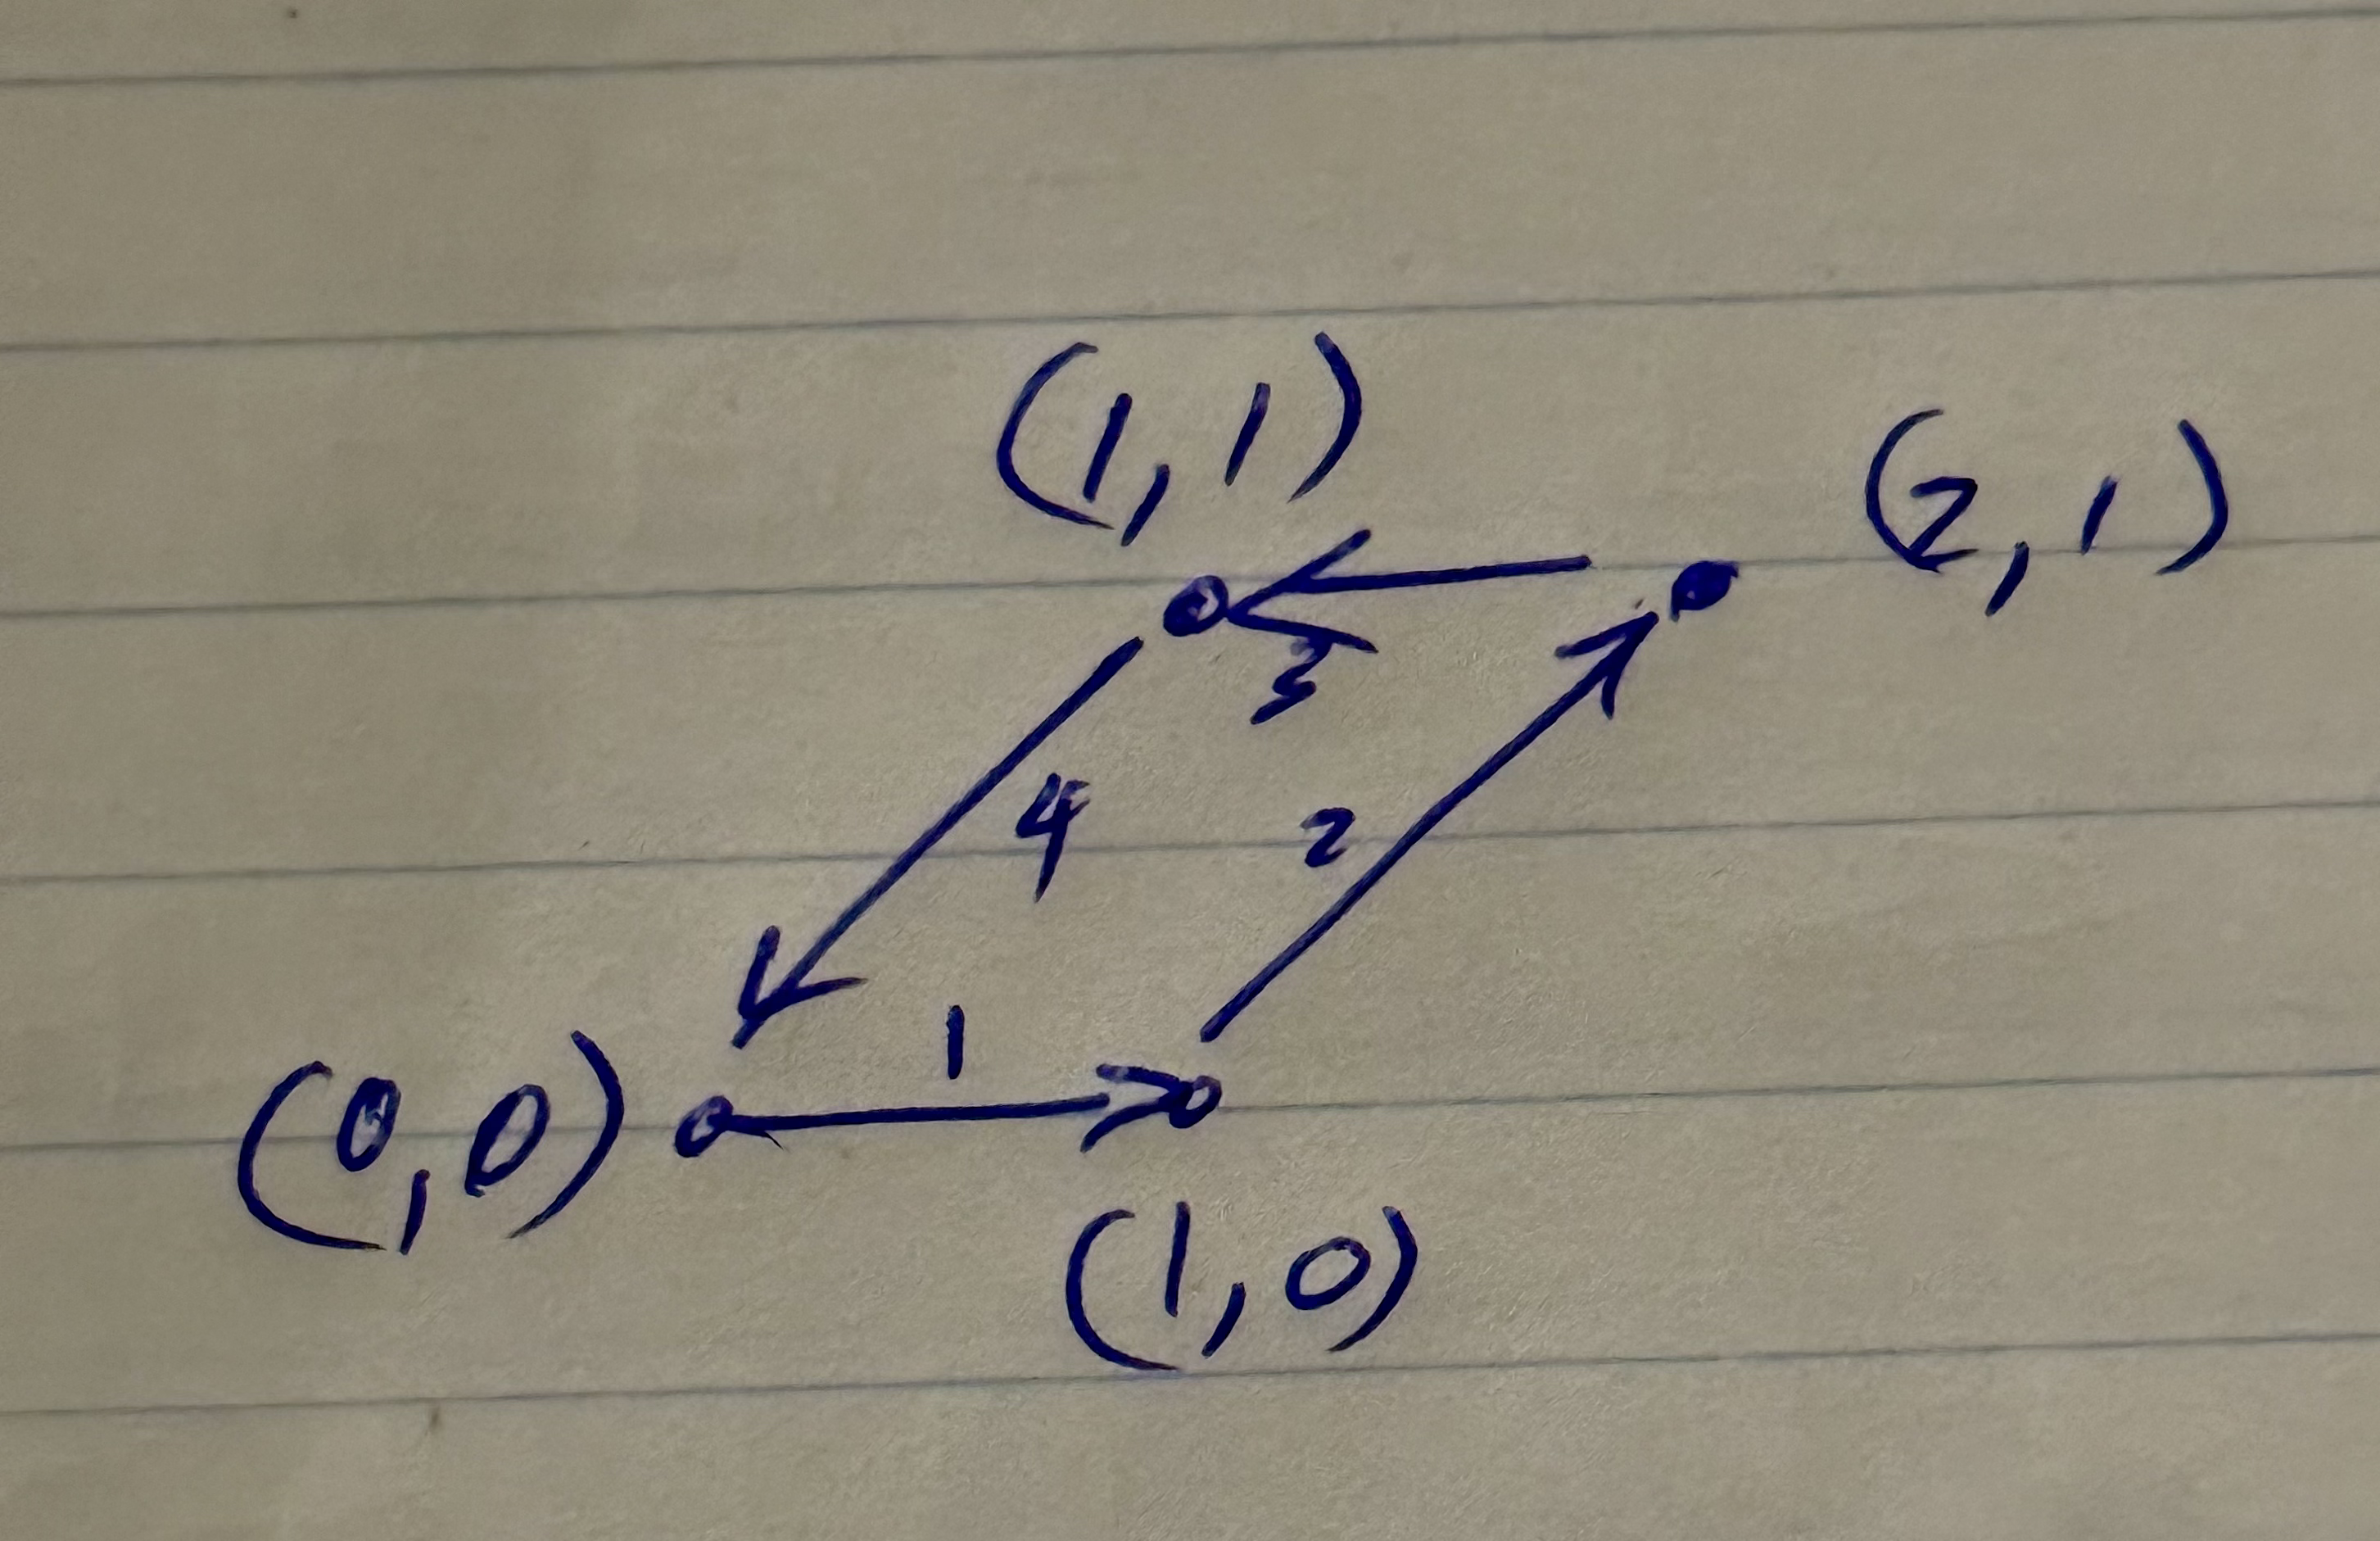 (1,1)
(2,1)
3
4
2
1
(0,0)
(1,0)